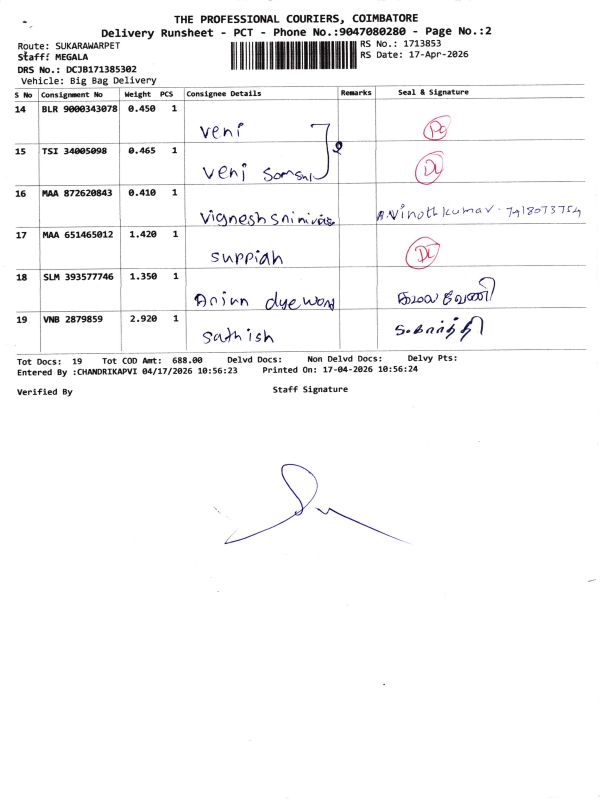 THE PROFESSIONAL COURIERS, COIMBATORE
Delivery Runsheet - PCT - Phone No.:9047080280 - Page No.:2
Route: SUKARAWARPET
Staff: MEGALA
DRS No.: DCJB171385302
Vehicle: Big Bag Delivery
RS No.: 1713853
RS Date: 17-Apr-2026
S No Consignment No Weight PCS Consignee Details Remarks Seal & Signature
14 BLR 9000343078 0.450 1 Veni
15 TSI 34005098 0.465 1 Veni
16 MAA 872620843 0.410 1 Vignesh Srinivas A.Vinothkumar - 7418073754
17 MAA 651465012 1.420 1 Suppiah
18 SLM 393577746 1.350 1 dye கமலவேணி
19 VNB 2879859 2.920 1 Sathish
Tot Docs: 19 Tot COD Amt: 688.00 Delvd Docs: Non Delvd Docs: Delvy Pts:
Entered By :CHANDRIKAPVI 04/17/2026 10:56:23 Printed On: 17-04-2026 10:56:24
Verified By Staff Signature